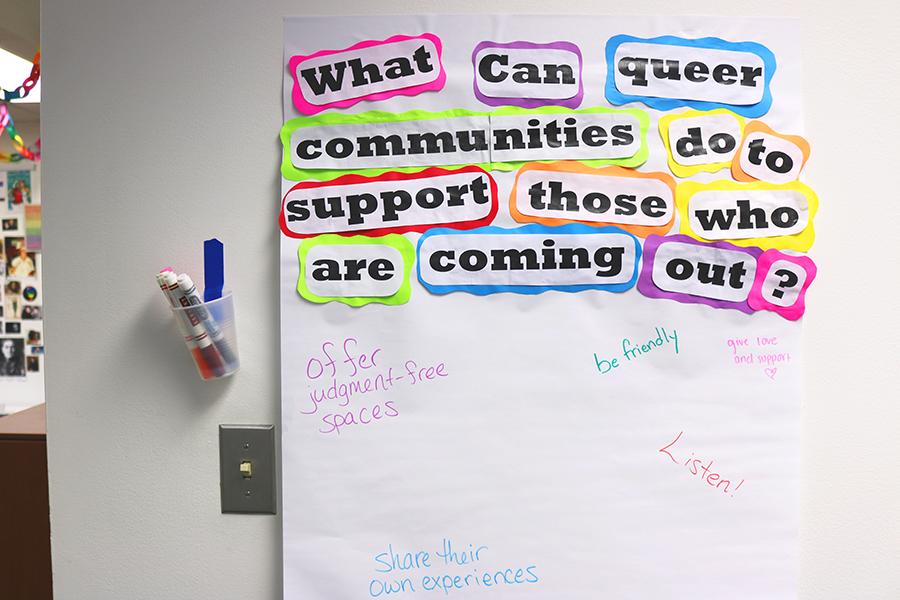 What Can queer
communities do to
support those who
are coming out ?
offer
judgment-free
spaces
be friendly
give love
and support
Listen!
share their
own experiences